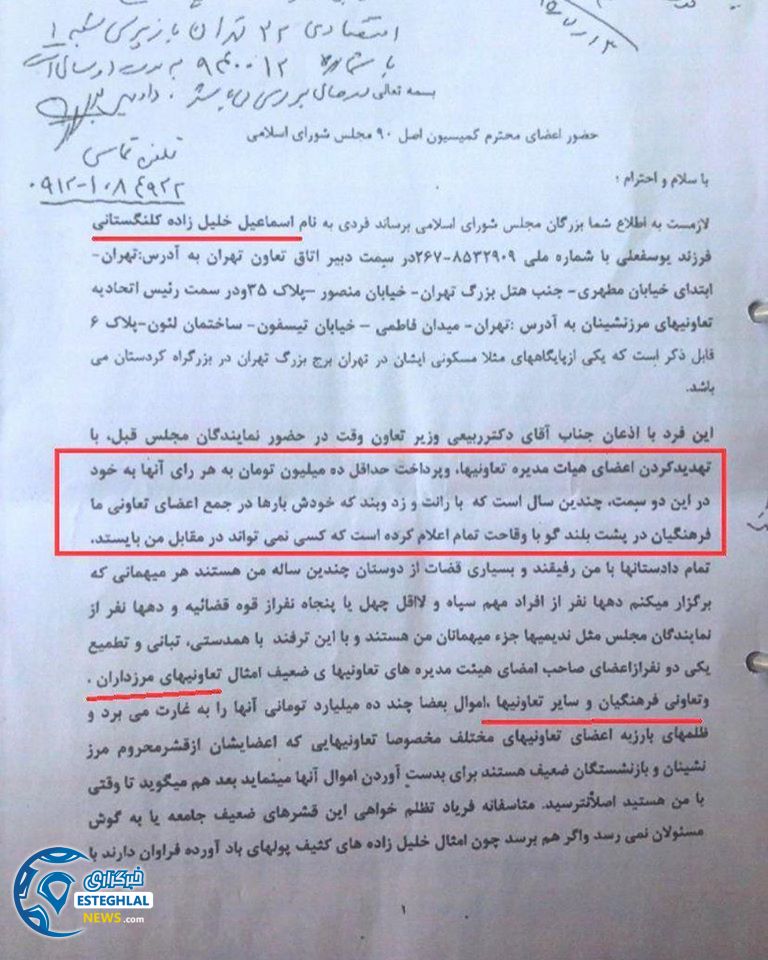 اقتصادی ۳۲ تهران بازپرسی شعبه ۱
با شماره ۹۴۰۰۱۲ به
بسمه تعالی
تلفن تماس
۰۹۱۲-۱۰۸۴۹۲۲
حضور اعضای محترم کمیسیون اصل ۹۰ مجلس شورای اسلامی
با سلام و احترام ؛
لازمست به اطلاع شما بزرگان مجلس شورای اسلامی برساند فردی به نام اسماعیل خلیل زاده کلنگستانی
فرزند یوسفعلی با شماره ملی ۸۵۳۲۹۰۹-۲۶۷در سمت دبیر اتاق تعاون تهران به آدرس:تهران-
ابتدای خیابان مطهری- جنب هتل بزرگ تهران- خیابان منصور –پلاک ۳۵ودر سمت رئیس اتحادیه
تعاونیهای مرزنشینان به آدرس :تهران- میدان فاطمی – خیابان تیسفون- ساختمان لئون-پلاک ۶
قابل ذکر است که یکی ازپایگاههای مثلا مسکونی ایشان در تهران برج بزرگ تهران در بزرگراه کردستان می
باشد.
این فرد با اذعان جناب آقای دکترربیعی وزیر تعاون وقت در حضور نمایندگان مجلس قبل، با
تهدیدکردن اعضای هیات مدیره تعاونیها، وپرداخت حداقل ده میلیون تومان به هر رای آنها به خود
در این دو سمت، چندین سال است که با رانت و زد وبند که خودش بارها در جمع اعضای تعاونی ما
فرهنگیان در پشت بلند گو با وقاحت تمام اعلام کرده است که کسی نمی تواند در مقابل من بایستد.
تمام دادستانها با من رفیقند و بسیاری قضات از دوستان چندین ساله من هستند هر میهمانی که
برگزار میکنم دهها نفر از افراد مهم سپاه و لااقل چهل یا پنجاه نفراز قوه قضائیه و دهها نفر از
نمایندگان مجلس مثل ندیمیها جزء میهمانان من هستند و با این ترفند با همدستی، تبانی و تطمیع
یکی دو نفرازاعضای صاحب امضای هیئت مدیره های تعاونیها ی ضعیف امثال تعاونیهای مرزداران ،
وتعاونی فرهنگیان و سایر تعاونیها ،اموال بعضا چند ده میلیارد تومانی آنها را به غارت می برد و
ظلمهای بارزبه اعضای تعاونیهای مختلف مخصوصا تعاونیهایی که اعضایشان ازقشرمحروم مرز
نشینان و بازنشستگان ضعیف هستند برای بدست آوردن اموال آنها مینماید بعد هم میگوید تا وقتی
با من هستید اصلاًنترسید. متاسفانه فریاد تظلم خواهی این قشرهای ضعیف جامعه یا به گوش
مسئولان نمی رسد واگر هم برسد چون امثال خلیل زاده های کثیف پولهای باد آورده فراوان دارند با
۱
خبرگزاری
ESTEGHLAL
NEWS.com